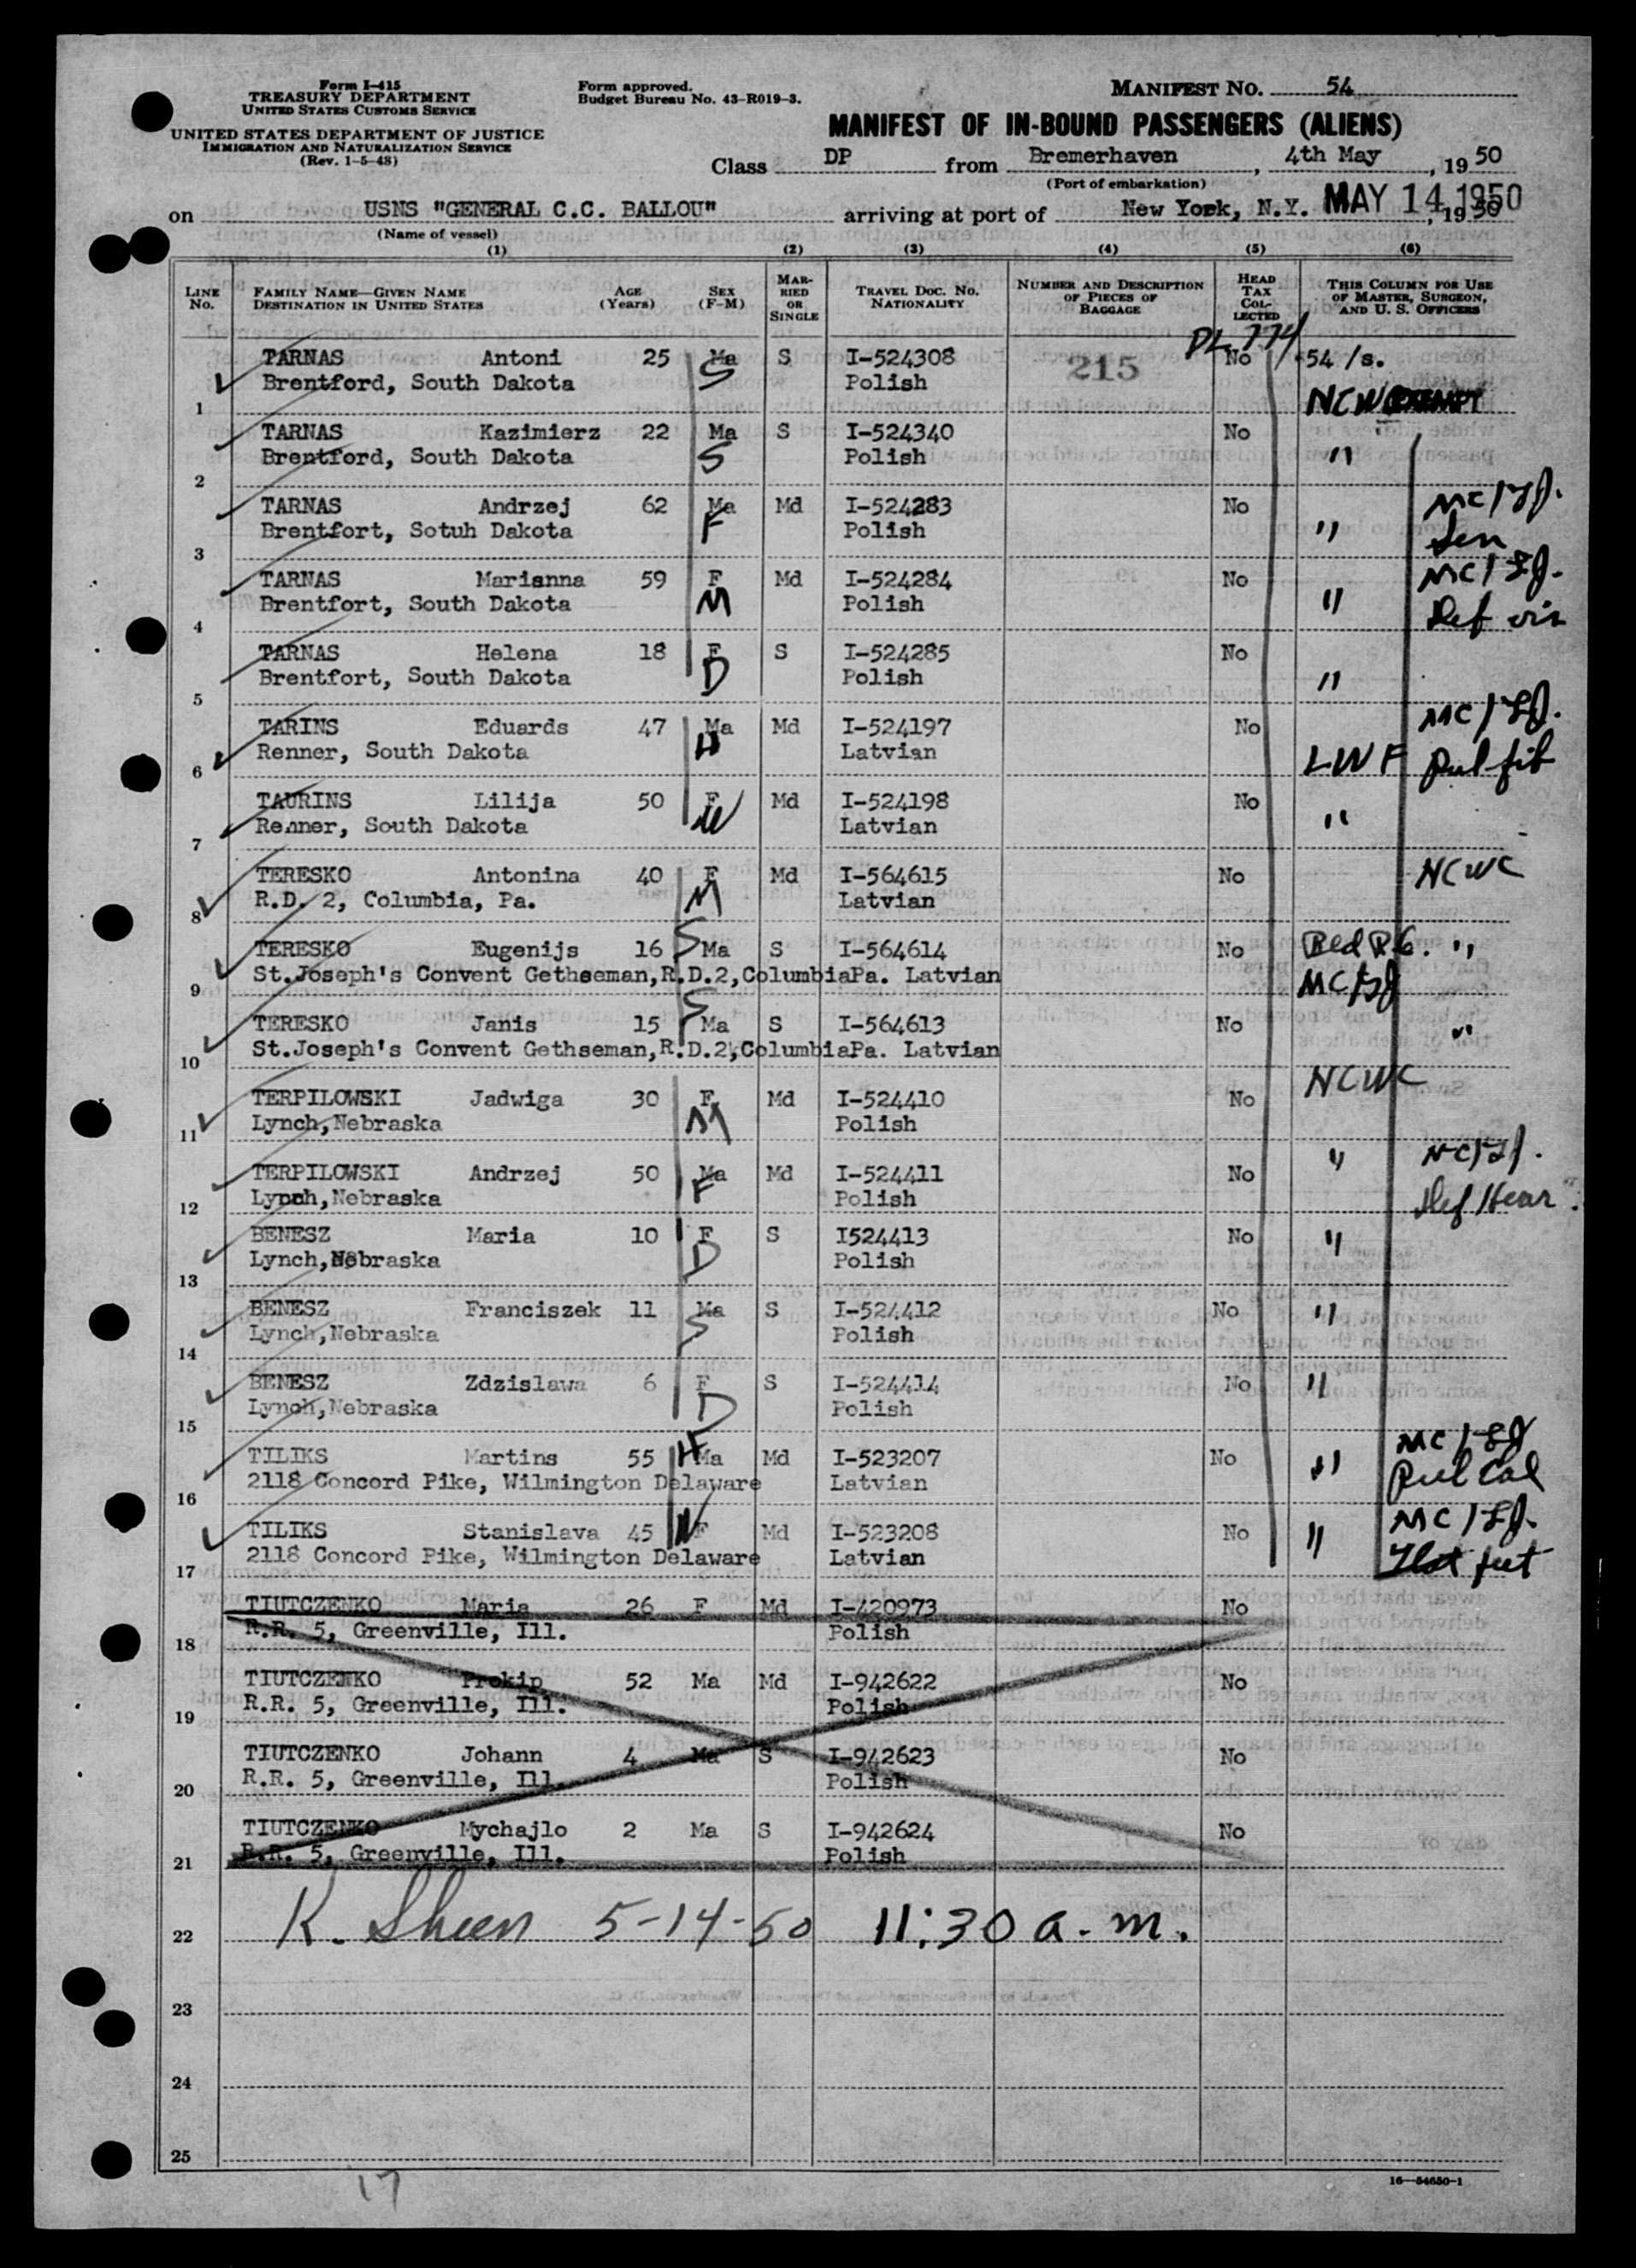 Form I-415
TREASURY DEPARTMENT
UNITED STATES CUSTOMS SERVICE
UNITED STATES DEPARTMENT OF JUSTICE
IMMIGRATION AND NATURALIZATION SERVICE
(Rev. 1-5-48)
Form approved.
Budget Bureau No. 43-R019-3.
MANIFEST NO. 54
MANIFEST OF IN-BOUND PASSENGERS (ALIENS)
Class DP from Bremerhaven, 4th May, 19 50
(Port of embarkation)
on USNS "GENERAL C.C. BALLOU" arriving at port of New York, N.Y. MAY 14 1950, 19 50
(Name of vessel)
(1) (2) (3) (4) (5) (6)
LINE No. FAMILY NAME—GIVEN NAME DESTINATION IN UNITED STATES AGE (Years) SEX (F-M) MARRIED OR SINGLE TRAVEL DOC. NO. NATIONALITY NUMBER AND DESCRIPTION OF PIECES OF BAGGAGE HEAD TAX COLLECTED THIS COLUMN FOR USE OF MASTER, SURGEON, AND U. S. OFFICERS
DL 774
TARNAS Antoni 25 Ma S I-524308 215 No 54 /s.
1 Brentford, South Dakota S Polish NCWC
TARNAS Kazimierz 22 Ma S I-524340 No
2 Brentford, South Dakota S Polish "
TARNAS Andrzej 62 Ma Md I-524283 No
3 Brentfort, Sotuh Dakota F Polish " Sen
TARNAS Marianna 59 F Md I-524284 No
4 Brentfort, South Dakota M Polish " Def vis
TARNAS Helena 18 F S I-524285 No
5 Brentfort, South Dakota D Polish "
TARINS Eduards 47 Ma Md I-524197 No
6 Renner, South Dakota H Latvian LWF Pul fib
TAURINS Lilija 50 F Md I-524198 No
7 Renner, South Dakota W Latvian "
TERESKO Antonina 40 F Md I-564615 No NCWC
8 R.D. 2, Columbia, Pa. M Latvian
TERESKO Eugenijs 16 S Ma S I-564614 No "
9 St.Joseph's Convent Gethseman,R.D.2,ColumbiaPa. Latvian
TERESKO Janis 15 S Ma S I-564613 No "
10 St.Joseph's Convent Gethseman,R.D.2,ColumbiaPa. Latvian
NCWC
TERPILOWSKI Jadwiga 30 F Md I-524410 No
11 Lynch,Nebraska M Polish
TERPILOWSKI Andrzej 50 Ma Md I-524411 No "
12 Lynch,Nebraska F Polish Def Hear
BENESZ Maria 10 F S I524413 No "
13 Lynch,Nebraska D Polish
BENESZ Franciszek 11 Ma S I-524412 No "
14 Lynch,Nebraska S Polish
BENESZ Zdzislawa 6 F S I-524414 No "
15 Lynch,Nebraska D Polish
TILIKS Martins 55 H Ma Md I-523207 No "
16 2118 Concord Pike, Wilmington Delaware Latvian Pul Cal
TILIKS Stanislava 45 W F Md I-523208 No "
17 2118 Concord Pike, Wilmington Delaware Latvian Flat feet
TIUTCZENKO Maria 26 F Md I-420973 No
18 R.R. 5, Greenville, Ill. Polish
TIUTCZENKO Prokip 52 Ma Md I-942622 No
19 R.R. 5, Greenville, Ill. Polish
TIUTCZENKO Johann 4 Ma S I-942623 No
20 R.R. 5, Greenville, Ill. Polish
TIUTCZENKO Mychajlo 2 Ma S I-942624 No
21 R.R. 5, Greenville, Ill. Polish
22 K. Sheen 5-14-50 11:30 a.m.
23
24
25
17
16—54650-1